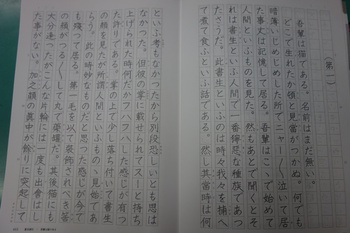 (第一)
吾輩は猫である。名前はまだ無い。
どこで生れたか頓と見當がつかぬ。何でも
暗薄いじめじめした所でニャー〱泣いて居
た事丈は記憶して居る。吾輩はこゝで始めて
人間といふものを見た。然もあとで聞くとそ
れは書生といふ人間で一番獰悪な種族であつ
たさうだ。此書生といふのは時々我々を捕へ
て煮て食ふといふ話である。然し其當時は何
といふ考もなかつたから別段恐しいとも思は
なかつた。但彼の掌に載せられてスーと持ち
上げられた時何だかフハフハした感じが有つ
た許りである。掌の上で少し落ち付いて書生
の顔を見たが所謂人間といふものゝ見始であ
らう。此の時妙なものだと思つた感じが今で
も残つて居る。第一毛を以て装飾されべき筈
の顔がつる〱して丸で薬罐だ。其後猫にも
大分逢つたがこんな片輪には一度も出會はし
た事がない。加之顔の真中が餘りに突起して